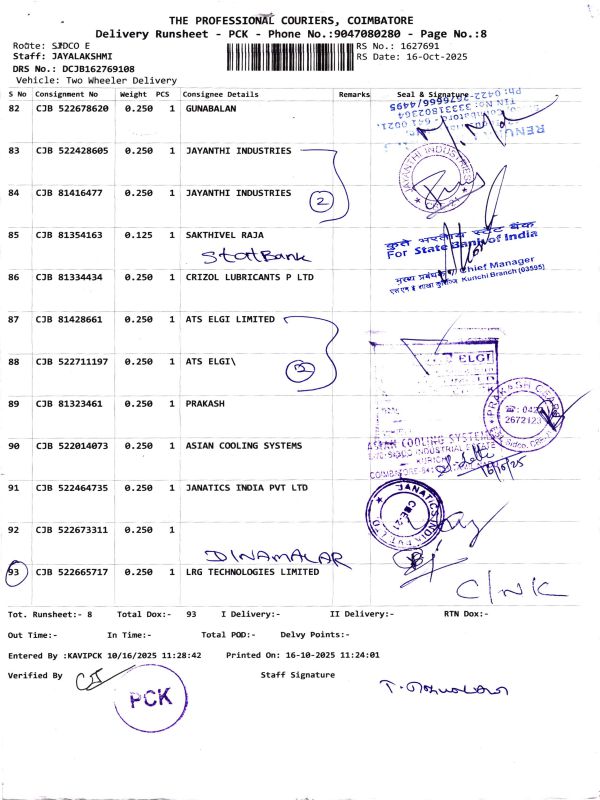 THE PROFESSIONAL COURIERS, COIMBATORE
Delivery Runsheet - PCK - Phone No.:9047080280 - Page No.:8
Route: SIDCO E
RS No.: 1627691
Staff: JAYALAKSHMI
RS Date: 16-Oct-2025
DRS No.: DCJB162769108
Vehicle: Two Wheeler Delivery
S No Consignment No Weight PCS Consignee Details Remarks Seal & Signature
82 CJB 522678620 0.250 1 GUNABALAN
83 CJB 522428605 0.250 1 JAYANTHI INDUSTRIES
JAYANTHI INDUSTRIES
84 CJB 81416477 0.250 1 JAYANTHI INDUSTRIES
2
85 CJB 81354163 0.125 1 SAKTHIVEL RAJA
कृते भारतीय स्टेट बैंक
For State Bank of India
Stat Bank
Chief Manager
Kurichi Branch (03595)
86 CJB 81334434 0.250 1 CRIZOL LUBRICANTS P LTD
87 CJB 81428661 0.250 1 ATS ELGI LIMITED
ELGI
88 CJB 522711197 0.250 1 ATS ELGI\
2
89 CJB 81323461 0.250 1 PRAKASH
2672123
90 CJB 522014073 0.250 1 ASIAN COOLING SYSTEMS
ASIAN COOLING SYSTEMS
SIDCO INDUSTRIAL ESTATE
KURICHI
16/10/25
91 CJB 522464735 0.250 1 JANATICS INDIA PVT LTD
JANATICS INDIA PVT LTD
CBE-21
92 CJB 522673311 0.250 1
DINAMALAR
93 CJB 522665717 0.250 1 LRG TECHNOLOGIES LIMITED
C/NK
Tot. Runsheet:- 8 Total Dox:- 93 I Delivery:- II Delivery:- RTN Dox:-
Out Time:- In Time:- Total POD:- Delvy Points:-
Entered By :KAVIPCK 10/16/2025 11:28:42 Printed On: 16-10-2025 11:24:01
Verified By
Staff Signature
PCK